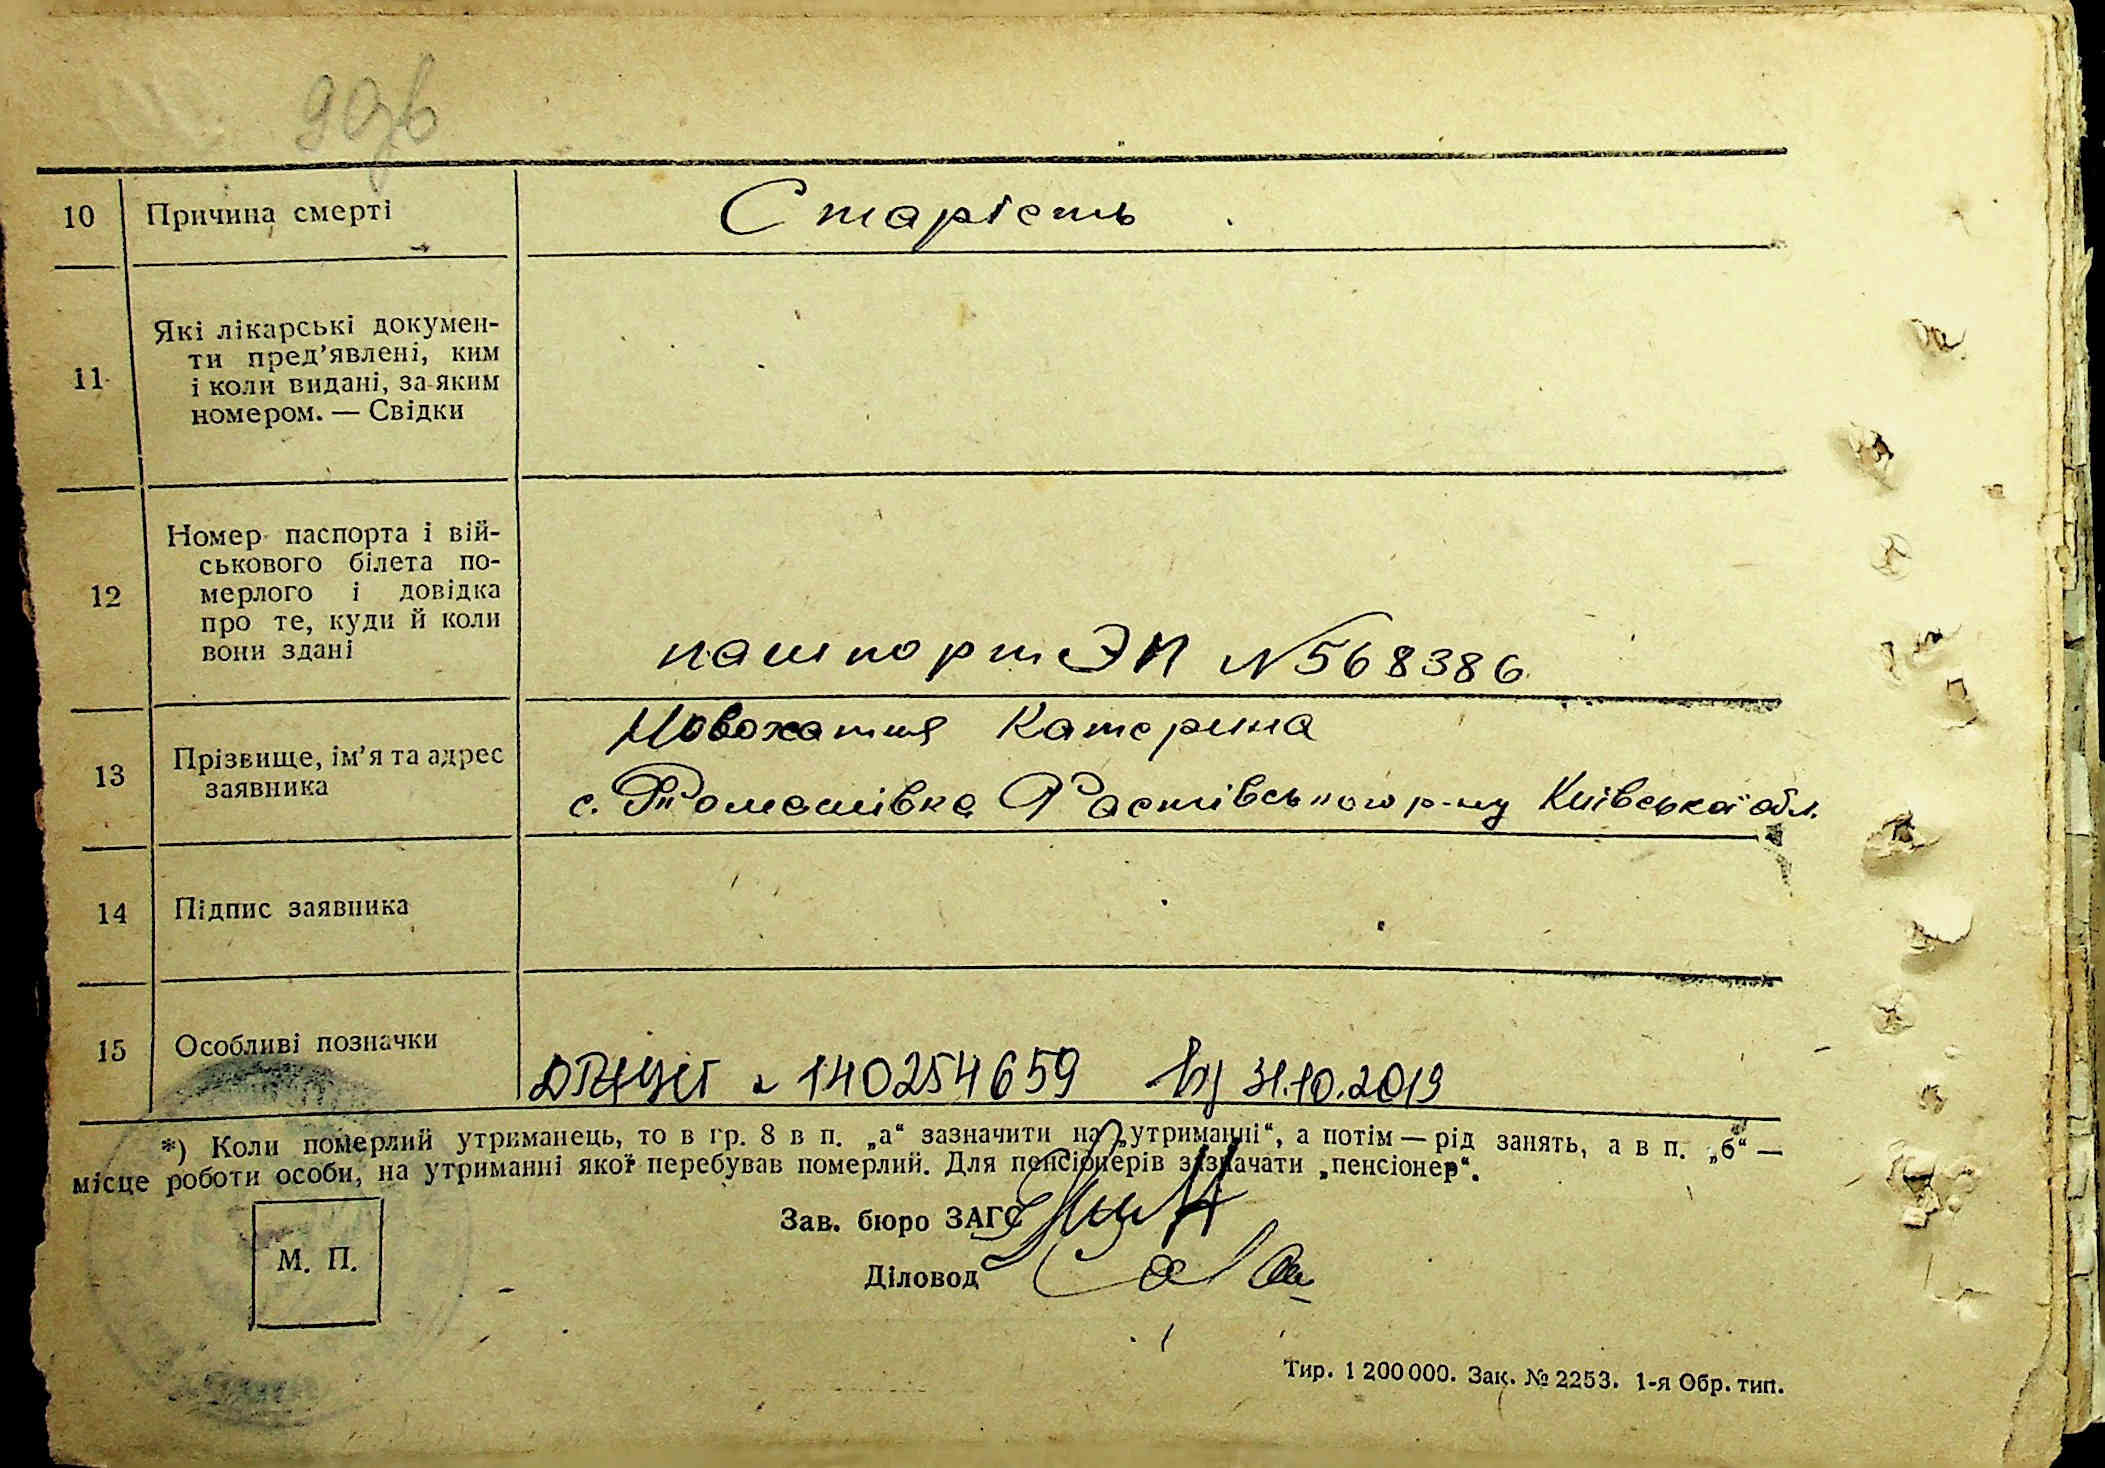 90зв
10 Причина смерті Старість
Які лікарські докумен-
ти пред’явлені, ким
11 і коли видані, за яким
номером. — Свідки
Номер паспорта і вій-
ськового білета по-
12 мерлого і довідка
про те, куди й коли
вони здані
пашпорт ЭП N 568386
Новохатня Катерина
13 Прізвище, ім’я та адрес
заявника
с. Томашівка Фастівського р-ну Київської обл.
14 Підпис заявника
15 Особливі позначки
140254659 від 31.10.2019
*) Коли померлий утриманець, то в гр. 8 в п. „а“ зазначити на „утриманні“, а потім — рід занять, а в п. „б“ —
місце роботи особи, на утриманні якої перебував померлий. Для пенсіонерів зазначати „пенсіонер“.
Зав. бюро ЗАГС
М. П.
Діловод
Тир. 1 200 000. Зак. № 2253. 1-я Обр. тип.